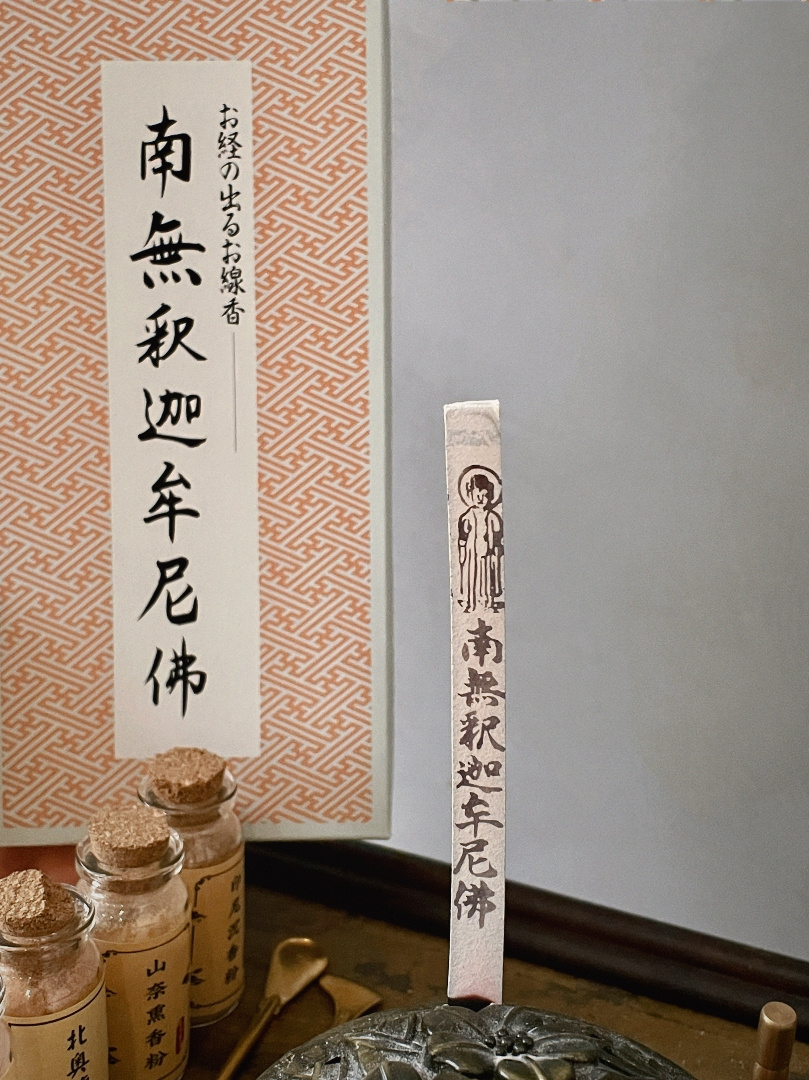 お経の出るお線香
南無釈迦牟尼佛
南無釈迦牟尼佛
印尼沉香粉
山奈熏香粉
北奥